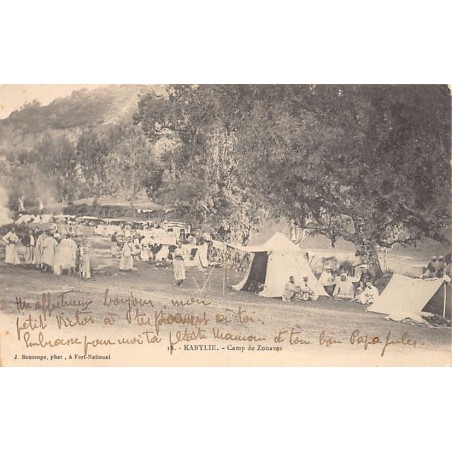 Un affectueux bonjour, mon
petit Victor à
Embrasse pour moi ta petite Maman et ton bon Papa
18. - KABYLIE. - Camp de Zouaves
J. Boussuge, phot., à Fort-National